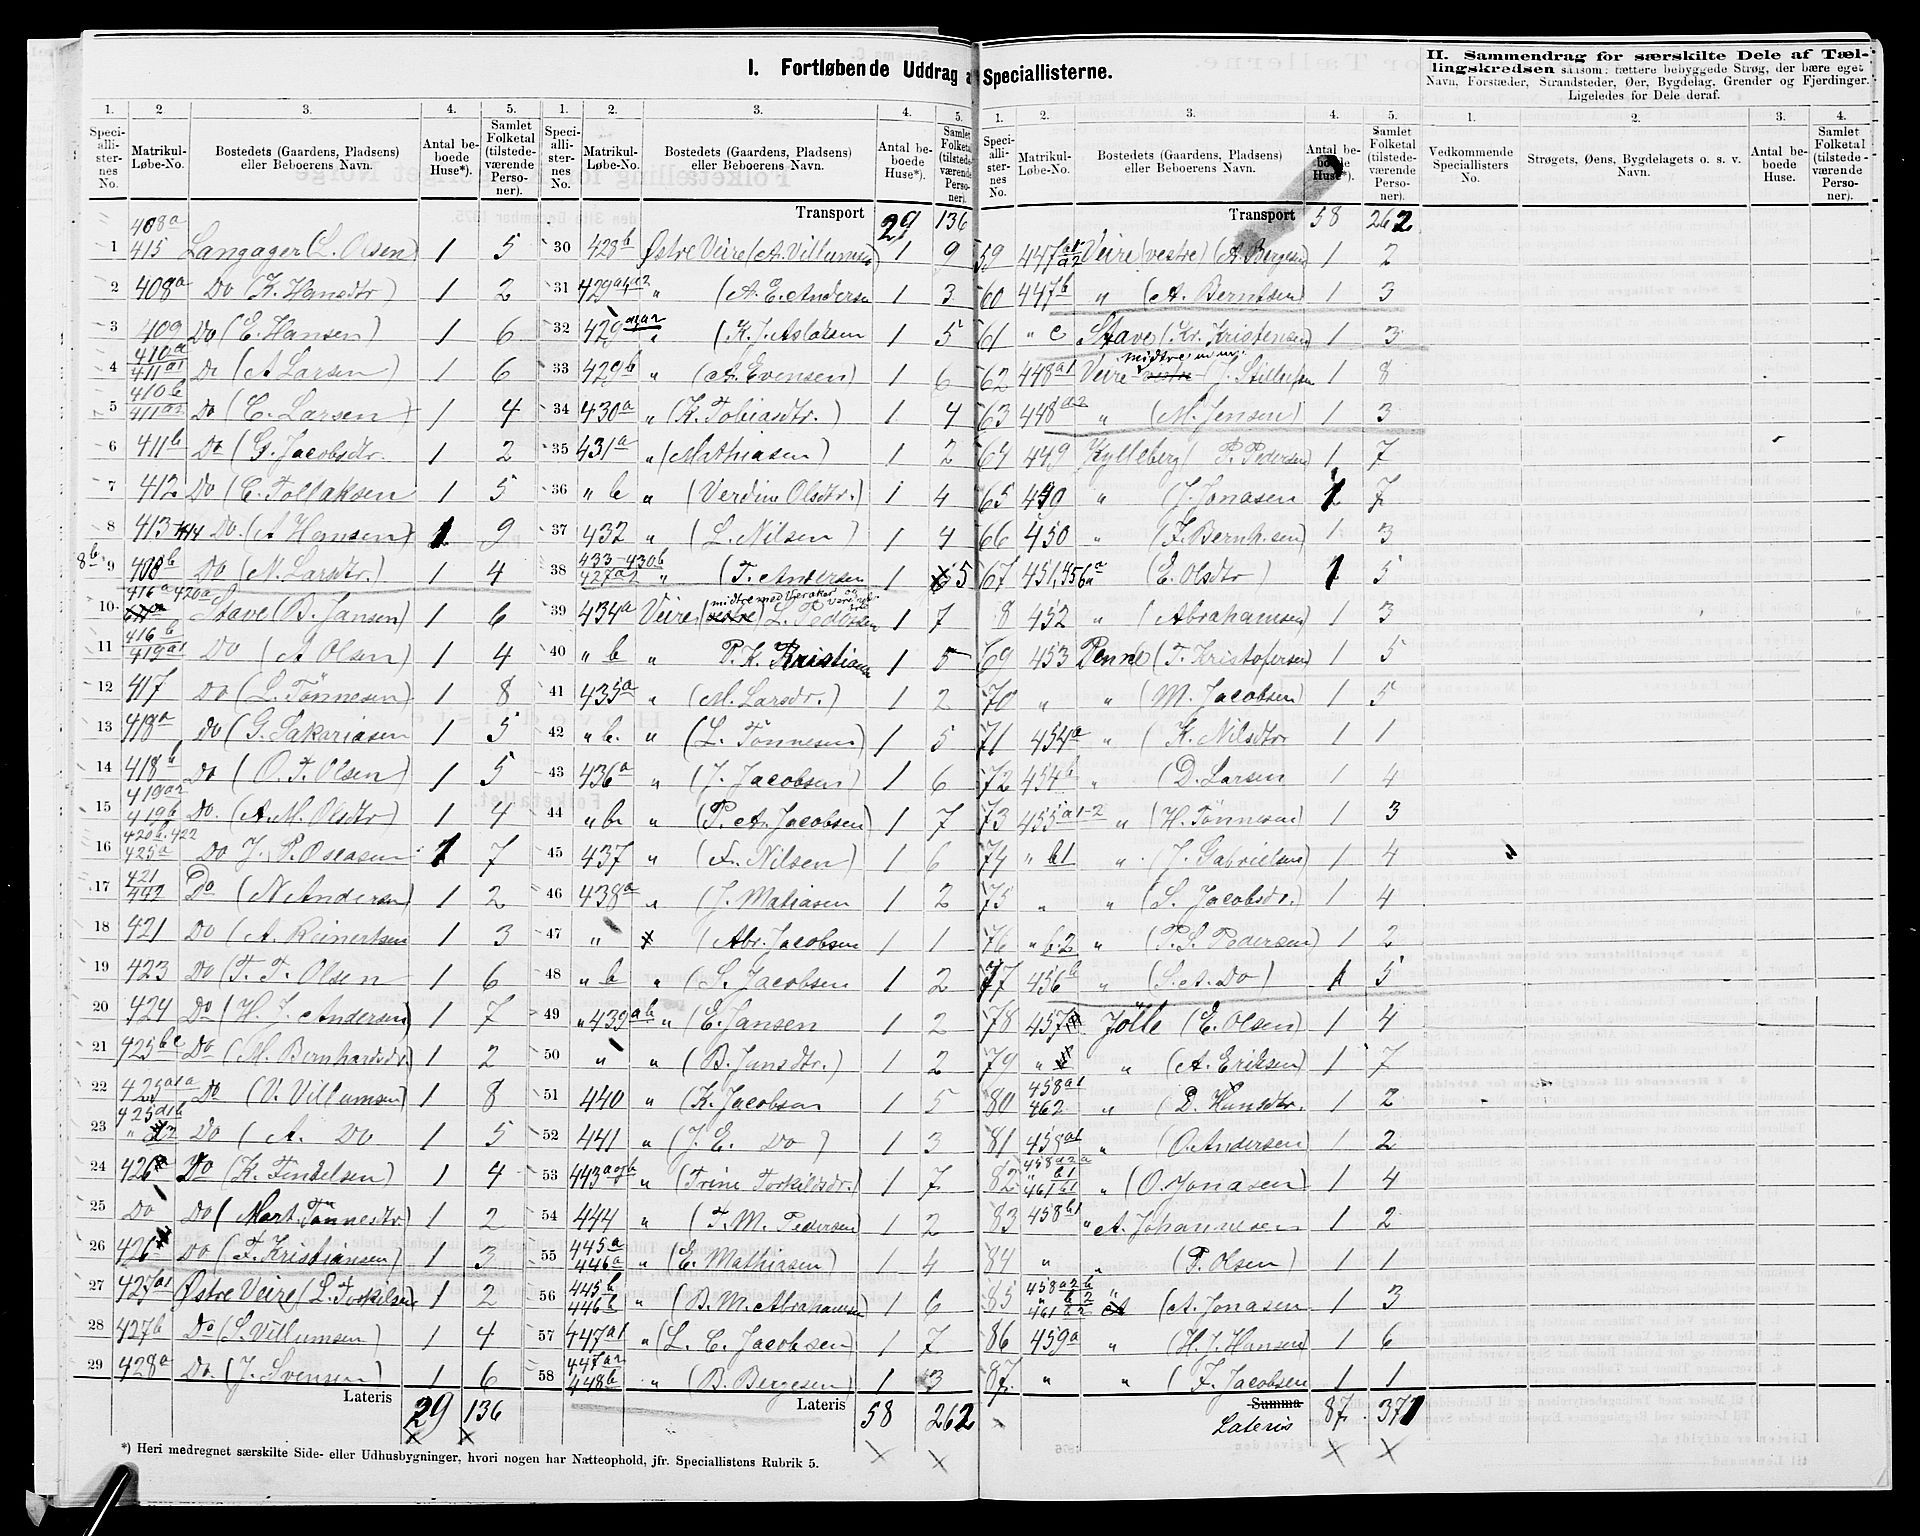 I. Fortløbende Uddrag a Speciallisterne.
II. Sammendrag for særskilte Dele af Tællingskredsen saasom: tættere bebyggede Strøg, der bære eget
Navn, Forstæder, Strandsteder, Øer, Bygdelag, Grender og Fjerdinger.
Ligeledes for Dele deraf.
1. 2 3. 4. 5.
Speciallisternes No. Matrikul-Løbe-No. Bostedets (Gaardens, Pladsens) eller Beboerens Navn. Antal beboede Huse*). Samlet Folketal (tilstedeværende Personer).
1 408a 415 Langager (L. Olsen) 1 5
2 408a Do (K. Hansdtr) 1 2
3 409 Do (E. Hansen) 1 6
4 410a 411a1 Do (A Larsen) 1 6
5 410b 411a2 Do (C. Larsen) 1 4
6 411b Do (G. Jacobsdtr. 1 2
7 412 Do (E. Tollaksen 1 5
8 413 414 Do. (A Hansen) 1 9
8b 9 408b Do (N. Larsdtr.) 1 4
10 416a 420a Stave (B. Jansen) 1 6
11 416b 419a1 Do (A Olsen) 1 4
12 417 Do (L. Tönnesen) 1 8
13 418a Do (G. Sakariasen 1 5
14 418b Do (O. T. Olsen) 1 5
15 419a2 419b Do. (A. M. Olsdtr) 1 4
16 420b. 422 425a Do J. P. Oseasen 1 7
17 421 442 Do (N. Andersen) 1 2
18 421 Do (A. Reinertsen 1 3
19 423 Do (T. T. Olsen 1 6
20 424 Do (H. J. Andersen) 1 7
21 425bc Do (M. Bernhardsdr. 1 2
22 425a1a Do (V. Villumsen) 1 8
23 425d1b Do (A. Do 1 5
24 426a Do (K. Findelsen) 1 4
25 Do Do (Mart. Tönnesdtr) 1 2
26 426 Do (F. Kristiansen) 1 3
27 427a1 Østre Veire (L. Torkilsen 1 2
28 427b Do (S. Villumsen) 1 4
29 428a Do. (J. Svensen) 1 6
Lateris 29 136
1. 2. 3. 4. 5.
Speciallisternes No. Matrikul-Løbe-No. Bostedets (Gaardens, Pladsens) eller Beboerens Navn. Antal beboede Huse*). Samlet Folketal (tilstedeværende Personer).
Transport 29 136
30 428b Østre Veire (A. Villumsen 1 9
31 429a1a2 " (A. E. Andersen 1 3
32 429a1a2 " (K. J. Aslaksen 1 5
33 429b " (A. Evensen) 1 6
34 430a " (K. Tobiasdtr.) 1 4
35 431a " (Mathiasen) 1 2
36 " b " (Verdine Olsdtr.) 1 4
37 432 " (L. Nilsen) 1 4
38 433-430b 427a2 " (T. Andersen 1 5
39 434a Veire (vestre) L. Pedersen 1 7
40 " b " P. K. Kristian 1 5
41 435a " (M. Larsdr.) 1 2
42 " b. " (L. Tönnesen) 1 5
43 436a " (J. Jacobsen) 1 6
44 " b " (P. A. Jacobsen) 1 7
45 437 " (A. Nilsen) 1 6
46 438a " (J. Matiasen 1 2
47 " (Abr. Jacobsen 1 1
48 " b " (S. Jacobsen 1 2
49 " 439ab " (E. Jansen 1 2
50 " " (B. Jansdtr.) 1 2
51 440 " (K. Jacobsen 1 5
52 441 " (J. E. Do) 1 3
53 443 " (Trine Torkildsdr.) 1 7
54 444 " (T. M. Pedersen) 1 2
55 445a 446a " (E. Mathiasen) 1 4
56 445b 446b " (B. M. Abrahamsen) 1 6
57 447a1 " (L. C. Jacobsen) 1 7
58 447a2 448b " (B. Bergesen) 1 3
Lateris 58 262
*) Heri medregnet særskilte Side- eller Udhusbygninger, hvori nogen har Natteophold, jfr. Speciallistens Rubrik 5.
1. 2. 3. 4. 5.
Speciallisternes No. Matrikul-Løbe-No. Bostedets (Gaardens, Pladsens) eller Beboerens Navn. Antal beboede Huse*). Samlet Folketal (tilstedeværende Personer).
Transport 58 262
59 447a1 a2 Veire (vestre) (A. Bergesen 1 2
60 447b " (A. Berntsen) 1 3
61 " c Stave (Kr. Kristensen) 1 3
62 448a1 Veire midtre vestre (J. 1 8
63 448a2 " (M. Jensen) 1 3
64 449 Kylleberg (P. Pedersen) 1 7
65 450 " (J. Jonasen 1 7
66 450 " (F. Bernh.sen) 1 3
67 451, 456a " (E. Olsdtr) 1 5
8 452 " (Abrahamsen) 1 3
69 453 Penne (T. Kristofersen) 1 5
70 " " (M. Jacobsen) 1 5
71 454a " (K. Nilsdtr 1 1
72 454b " (D. Larsen 1 4
73 455a1-2 " (H. Tönnesen 1 3
74 " b1 " (J. Gabrielsen) 1 4
75 " " (S. Jacobsdr.) 1 4
76 " b.2 " (P. S. Pedersen) 1 2
77 456b " (S. A. Do) 1 5
78 457 Jölle (E. Olsen) 1 4
79 " " (A. Eriksen) 1 7
80 458a1 462 " (D. Hansdtr. 1 2
81 458a1 " (O. Andersen 1 2
82 458a2a b1 461b1 " (O. Jonasen) 1 4
83 458b1 " A. Johannesen 1 2
84 " " (P. Olsen) 1 1
85 458a2b " b2 461a2 " (A. Jonasen 1 3
86 459a " (H. J. Hansen) 1 6
87. " " (F. Jacobsen 1 1
Summa
Lateris 87. 371
1. 2. 3. 4.
Vedkommende Speciallisters No. Strøgets, Øens, Bygdelagets o. s. v. Navn. Antal beboede Huse. Samlet Folketal (tilstedeværende Personer).